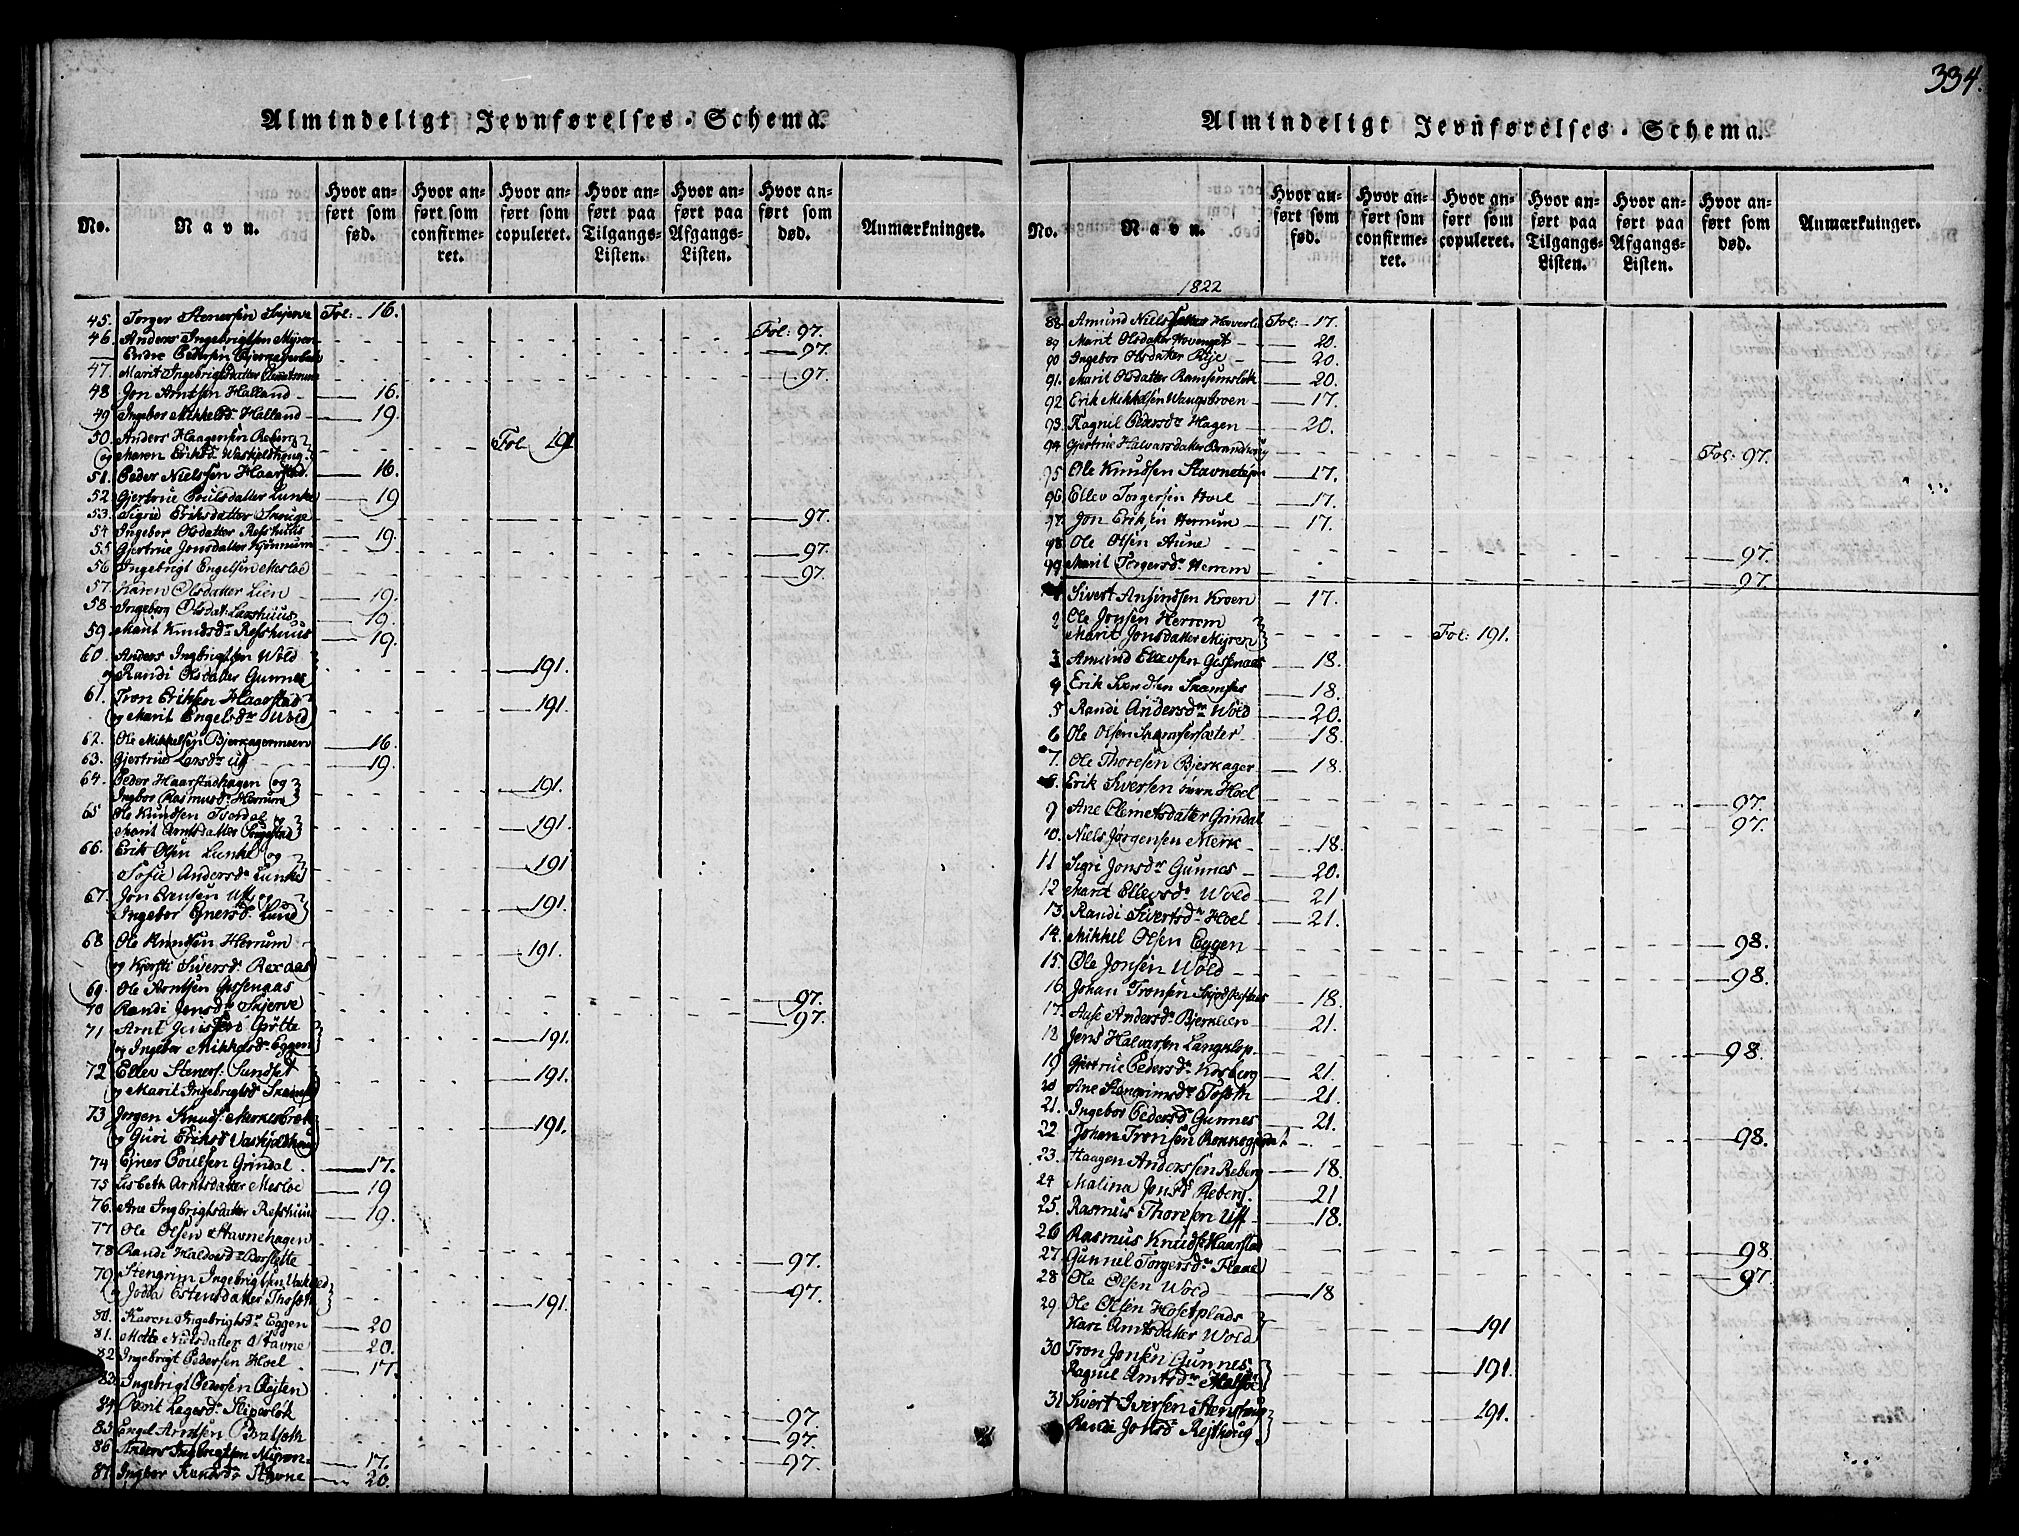 334.
Almindeligt Jevnførelses-Schema.
No. Navn. Hvor anført som fød. Hvor anført som confirmeret. Hvor anført som copuleret. Hvor anført paa Tilgangs-Listen. Hvor anført paa Afgangs-Listen. Hvor anført som død. Anmærkninger.
45. Torger Stenersen Skjerve Fol: 16.
46. Anders Ingebrigtsen Myren Fol: 97.
Endre Pedersen 97.
47. Marit Ingebrigtsdatter 97.
48 Jon Arntsen Halland 16.
49 Ingebor Mikkelsdr Halland 19.
50. Anders Haagensen Reberg
og Maren Eriksdr Waskjeldhoug Fol 191
51. Peder Nielssen Haarstad 16.
52 Gjertrue Poulsdatter Lunke 19
53. Sigrid Eriksdatter Skouge 97.
54 Ingebor Olsdatter Refshuus 19.
55 Gjertrue Jonsdatter Kjønnum 97.
56 Ingebrigt Engelsen Mesloe 97.
57. Karen Olsdatter Lien 19.
58. Ingeberg Olsdat: Larshuus 19.
59 Marit Knudsdr Refshuus 19.
60. Anders Ingbrigtsen Wold
og Randi Olsdatter Gunnes 191.
61. Tron Eriksen Haarstad
og Marit Engelsdr Wold 191.
62. Ole Mikkelsen Bjerkagermoen 16.
63. Gjertrud Larsdr Uff 19.
64. Peder Haarstadhagen og
Ingbor Rasmusdr Herrum 191.
65 Ole Knudsen Tvordal og
Marit Arntsdatter 191.
66. Erik Olsen Lunke og
Sofie Andersdr Lunke 191
67. Jon Evensen Uff og
Ingebor Ejnersdr Lund 191.
68 Ole Knudsen Herrum
og Kjersti Siversdr Rexaas 191.
69. Ole Arntsen Gissenaas 97.
70 Randi Jonsdr Skjerve 97.
71 Arnt Gøtte
og Ingebor Mikkelsdr Eggen 191.
72 Ellev Steners: Sundset
og Marit Ingebrigtsdr 191.
73 Jørgen Knuds:
og Guri Eriksdr Vaskjeldhoug 191.
74 Ejner Poulsen Grindal 17.
75 Lisbeth Arntsdatter Mesloe 19
76. Ane Ingbrigtsdatter Refshuus 19.
77 Ole Olsen Stavnehagen 97.
78 Randi Haldorsdr 97.
79 Stengrim Ingebrigtsen
og Jodia Estensdatter Thosøth 191.
80. Karen Ingebrigtsdr Eggen 20
81. Mette Nielsdatter Stavne 20.
82 Ingebrigt Pedersen Hoel 17.
83. Ingebrigt Pedersen Rejten 97.
84. Berit Lagesdr Sliperløk 97.
85 Engel Arntsen 97.
86 Anders Ingbrigtsen Myren 17.
87 Ingbor Stavne 20.
Almindeligt Jevnførelses-Schema.
No. Navn. Hvor anført som fød. Hvor anført som confirmeret. Hvor anført som copuleret. Hvor anført paa Tilgangs-Listen. Hvor anført paa Afgangs-Listen. Hvor anført som død. Anmærkninger.
1822
88 Amund Niels Hoverli Fol: 17.
89 Marit Olsdatter Hovenget 20.
90 Ingebor Olsdatter Reje 20.
91. Marit Olsdatter Ramsemsløk 20.
92 Erik Mikkelsen Wangskroen 17.
93. Ragnil Pedersdr Hagen 20.
94 Gjertrue Halvarsdatter Brandhoug Fol: 97.
95 Ole Knudsen Stavneteien 17.
96 Ellev Torgersen Hoel 17.
97. Jon Eriksen Herrum 17.
98. Ole Olsen Aune 97.
99 Marit Torgersdr Herrem 97.
1 Sivert Amundsen Kroen 17.
2 Ole Jonsen Herrem
Marit Jonsdatter Myren Fol: 191.
3 Amund Ellevsen Gissenaas 18.
4 Erik 18.
5 Randi Andersdr Wold 20.
6 Ole Olsen Skamfersæter 18.
7. Ole Thoresen Bjerkager 18.
8. Erik Sivertsen Hoel 97.
9 Ane Clemetsdatter Grindal 97.
10. Niels Jørgensen Merk 18.
11 Sigri Jonsdr Gunnes 20.
12 Marit Ellevsdr Wold 21
13. Randi Sivertsdr Hoel 21.
14. Mikkel Olsen Eggen 98.
15. Ole Jonsen Wold 98.
16 Johan Tronsen 18.
17. Aase Andersdr Bjerklien 21.
18 Jens Halvarsen Langklop 98.
19 Gjertrue Pedersdr Korsberg 21.
20 Ane Stengrimsdr Tosøth 21.
21. Ingebor Pedersdr Gunnes 21.
22 Johan Tronsen 98.
23. Haagen Anderssen Reberg 18.
24 Malina Jonsdr Reberg. 21
25. Rasmus Thoresen Uff 18.
26 Rasmus Knuds: Haarstad 98.
27. Gunnil Torgersdr Flaae 97.
28 Ole Olsen Wold 18
29. Ole Olsen Hosetplads
Kari Arntsdatter Wold 191
30 Tron Jonsen Gunnes
Ragnil Arntsdr 191.
31 Sivert Iversen Stenshoug
Randi Jonsdr Rejthoug 191.